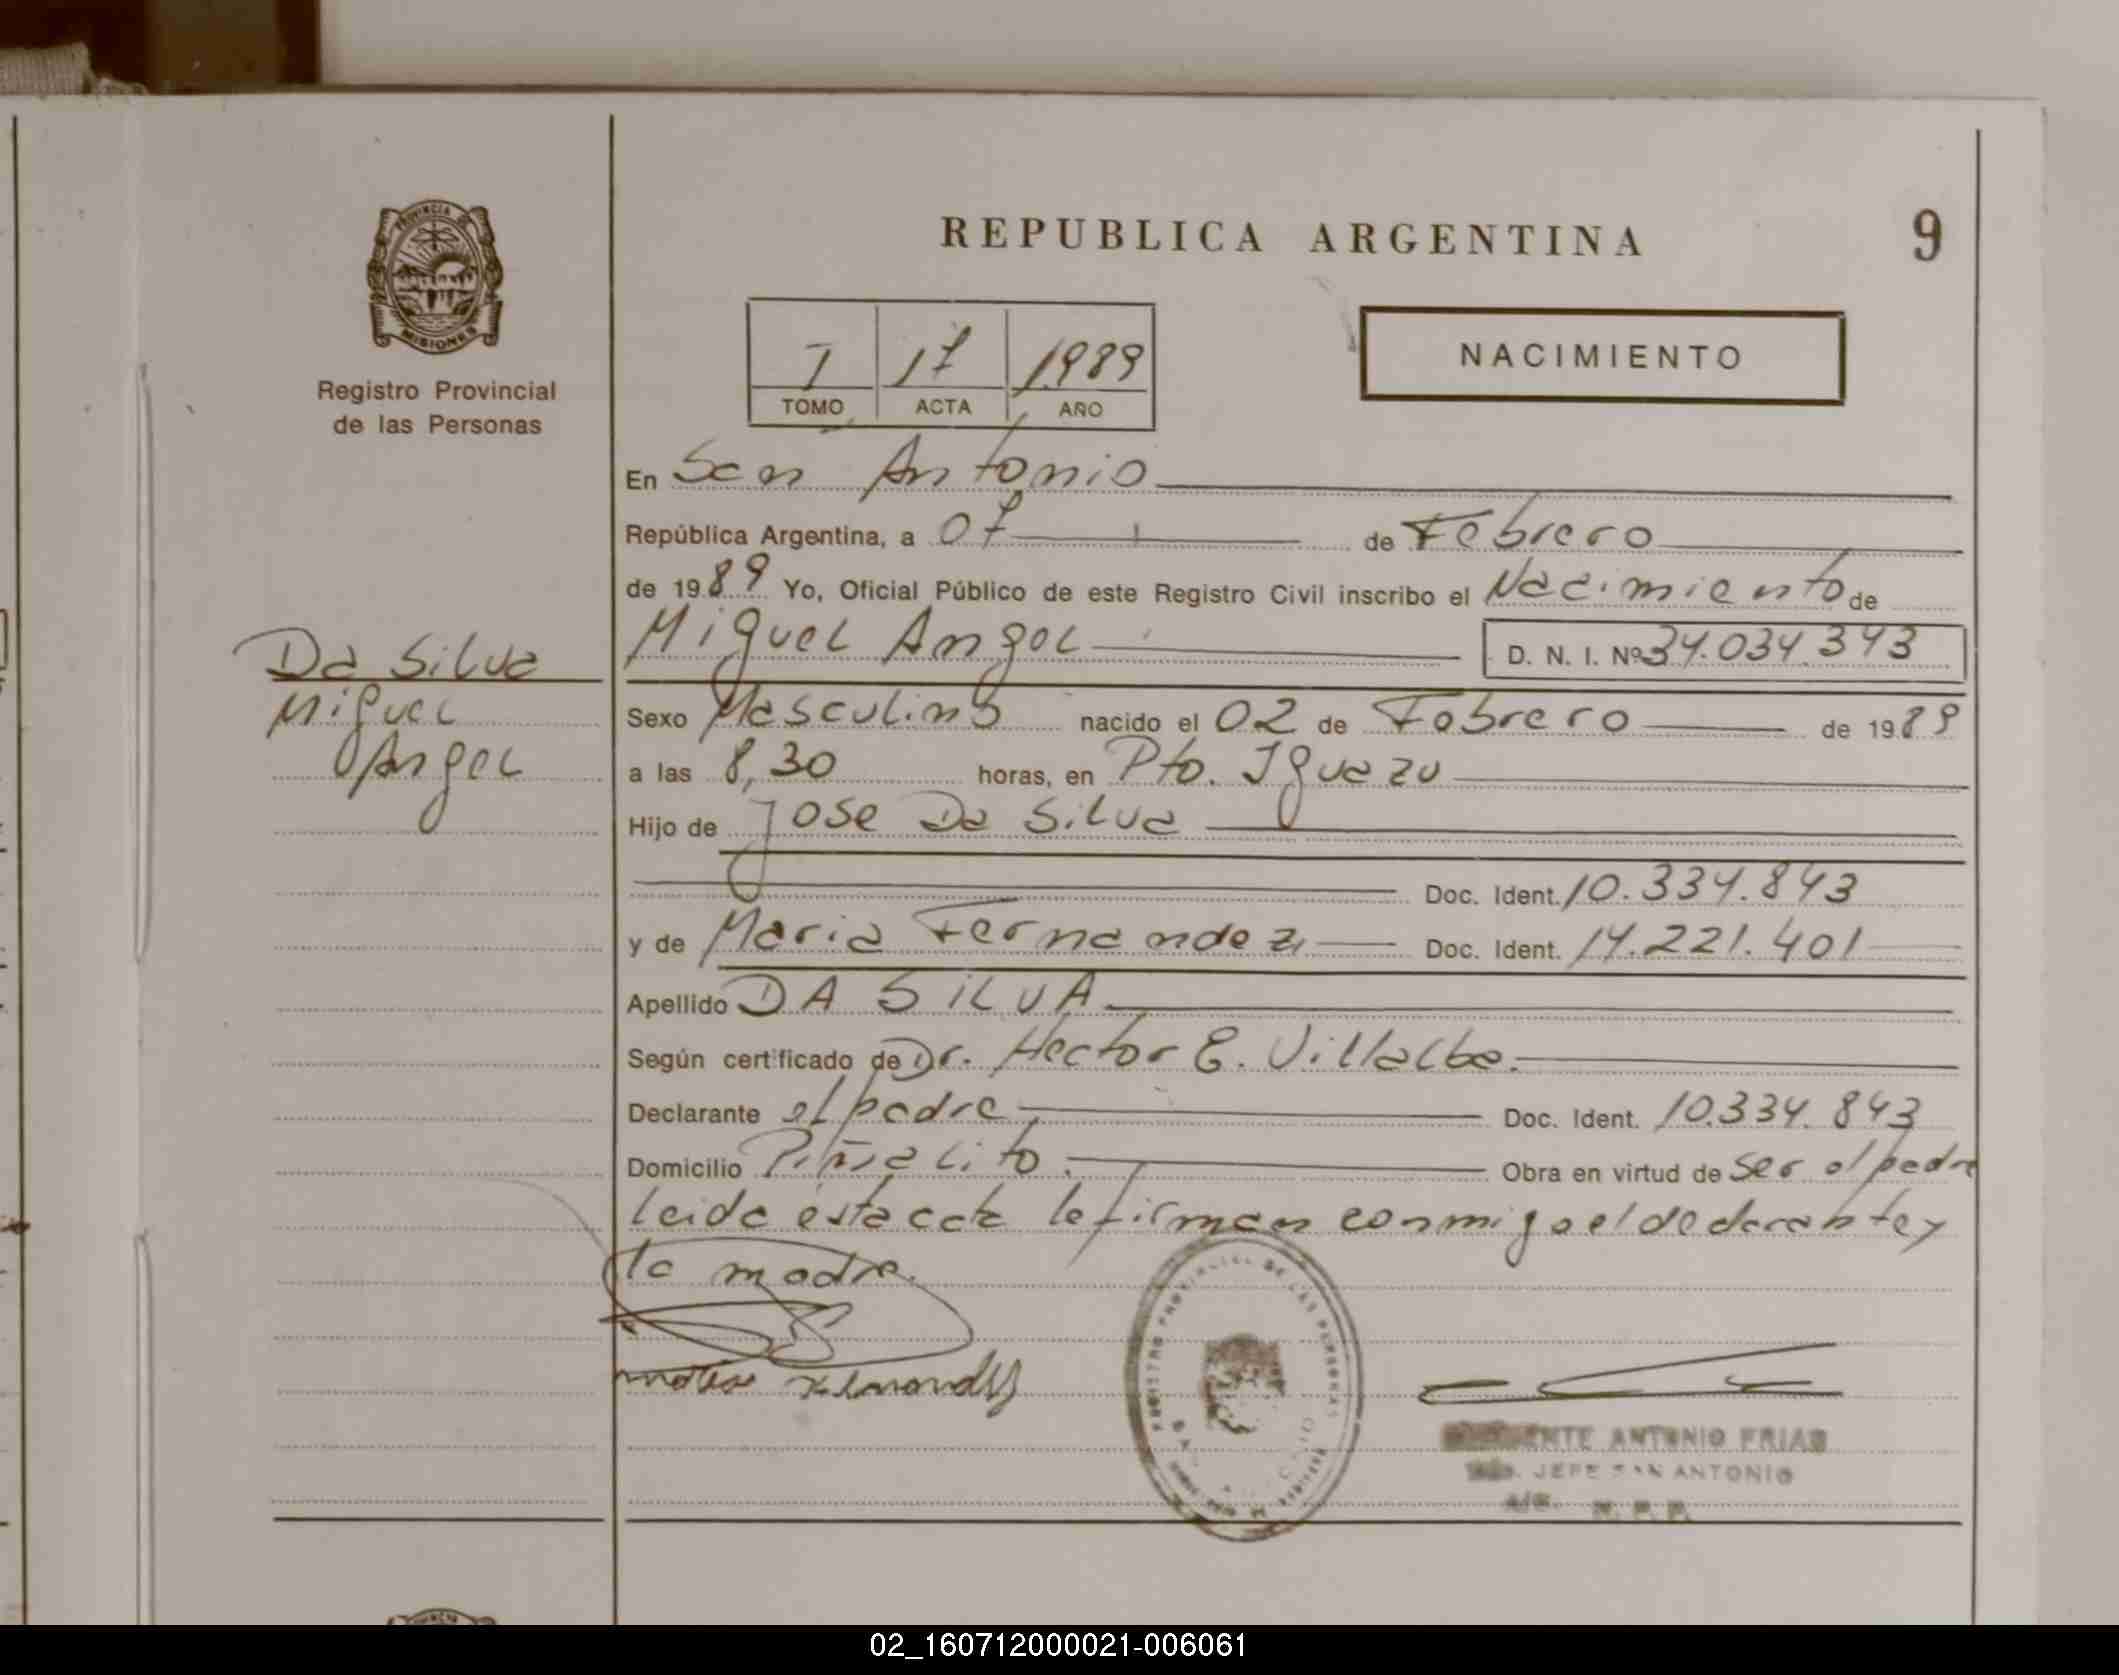 REPUBLICA ARGENTINA
9
PROVINCIA DE
MISIONES
Registro Provincial
de las Personas
I 17 1989
TOMO ACTA AÑO
NACIMIENTO
En San Antonio
República Argentina, a 07 de Febrero
de 1989 Yo, Oficial Público de este Registro Civil inscribo el Nacimiento de
Miguel Angel D. N. I. Nº 34.034.343
Da Silva
Miguel
Angel
Sexo Masculino nacido el 02 de Febrero de 1989
a las 8,30 horas, en Pto. Iguazu
Hijo de Jose Da Silva
Doc. Ident. 10.334.843
y de Maria Fernandez Doc. Ident. 14.221.401
Apellido DA SILVA
Según certificado de Dr. Hector E. Villalba.
Declarante el padre Doc. Ident. 10.334.843
Domicilio Piñalito. Obra en virtud de ser el padre
leida esta acta la firman conmigo el declarante y
la madre.
REGISTRO PROVINCIAL DE LAS PERSONAS
ANTONIO FRIAS
JEFE SAN ANTONIO
R. P. P.
02_160712000021-006061